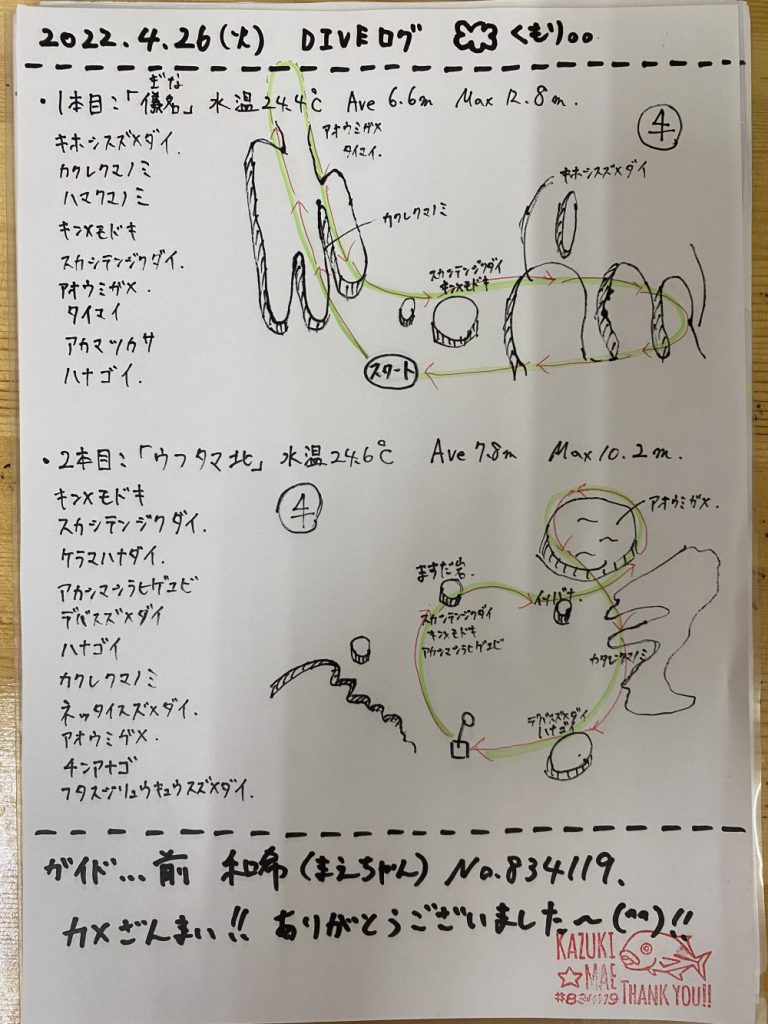 2022.4.26(火) DIVEログ くもり。。
ぎな
・1本目:「儀名」水温24.4℃ Ave 6.6m Max 12.8m.
キホシスズメダイ.
カクレクマノミ
ハマクマノミ
キンメモドキ
スカシテンジクダイ.
アオウミガメ.
タイマイ
アカマツカサ
ハナゴイ.
アオウミガメ
タイマイ.
カクレクマノミ
キホシスズメダイ
スカシテンジクダイ
キンメモドキ
スタート
・2本目:「ウフタマ北」水温24.6℃ Ave 7.8m Max 10.2m.
キンメモドキ
スカシテンジクダイ.
ケラマハナダイ.
アカシマシラヒゲエビ
デバスズメダイ
ハナゴイ
カクレクマノミ
ネッタイスズメダイ.
アオウミガメ.
チンアナゴ
フタスジリュウキュウスズメダイ.
アオウミガメ.
ますだ岩.
イソバナ
スカシテンジクダイ
キンメモドキ
アカシマシラヒゲエビ
カクレクマノミ
デバスズメダイ
ハナゴイ
ガイド...前 和希(まえちゃん) No.834119.
カメざんまい!! ありがとうございました〜(^^)!!
KAZUKI
MAE
#834119 THANK YOU!!